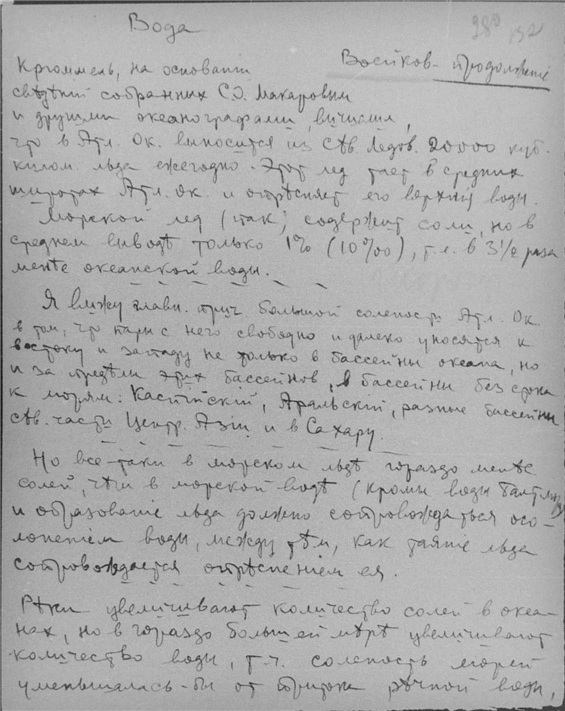 Вода
280
192
Воейков - продолженіе
Крюммель, на основаніи
свѣдѣній собранных С.О. Макаровым
и другими океанографами, вычислил,
что в Атл. Ок. выносится из Сѣв. Ледов. 20000 куб.
килом. льда ежегодно. Этот лед тает в средних
широтах Атл. Ок. и опрѣсняет его верхніи воды.
Морской лед (так) содержит соли, но в
среднем выводѣ только 1% (10‰), т.е. в 3½ раза
менѣе океанской воды.
Я вижу главн. прич большой солености Атл. Ок
в том, что пары с него свободно и далеко уносятся к
востоку и западу не только в бассейны океана, но
и за предѣлы этих бассейнов, в бассейны без стока
к морям: Каспійскій, Аральскій, разные бассейны
сѣв. части Центр. Азіи и в Сахару.
Но все-таки в морском льдѣ гораздо менѣе
солей, чѣм в морской водѣ (кромѣ воды Балт. м.)
и образованіе льда должно сопровождаться осо-
лоненіем воды, между тѣм, как таяніе льда
сопровождается опрѣсненіем ея.
Рѣки увеличивают количество солей в океа-
нах, но в гораздо большей мѣрѣ увеличивают
количество воды, т.ч. соленость морей
уменьшалась-бы от притока рѣчной воды,